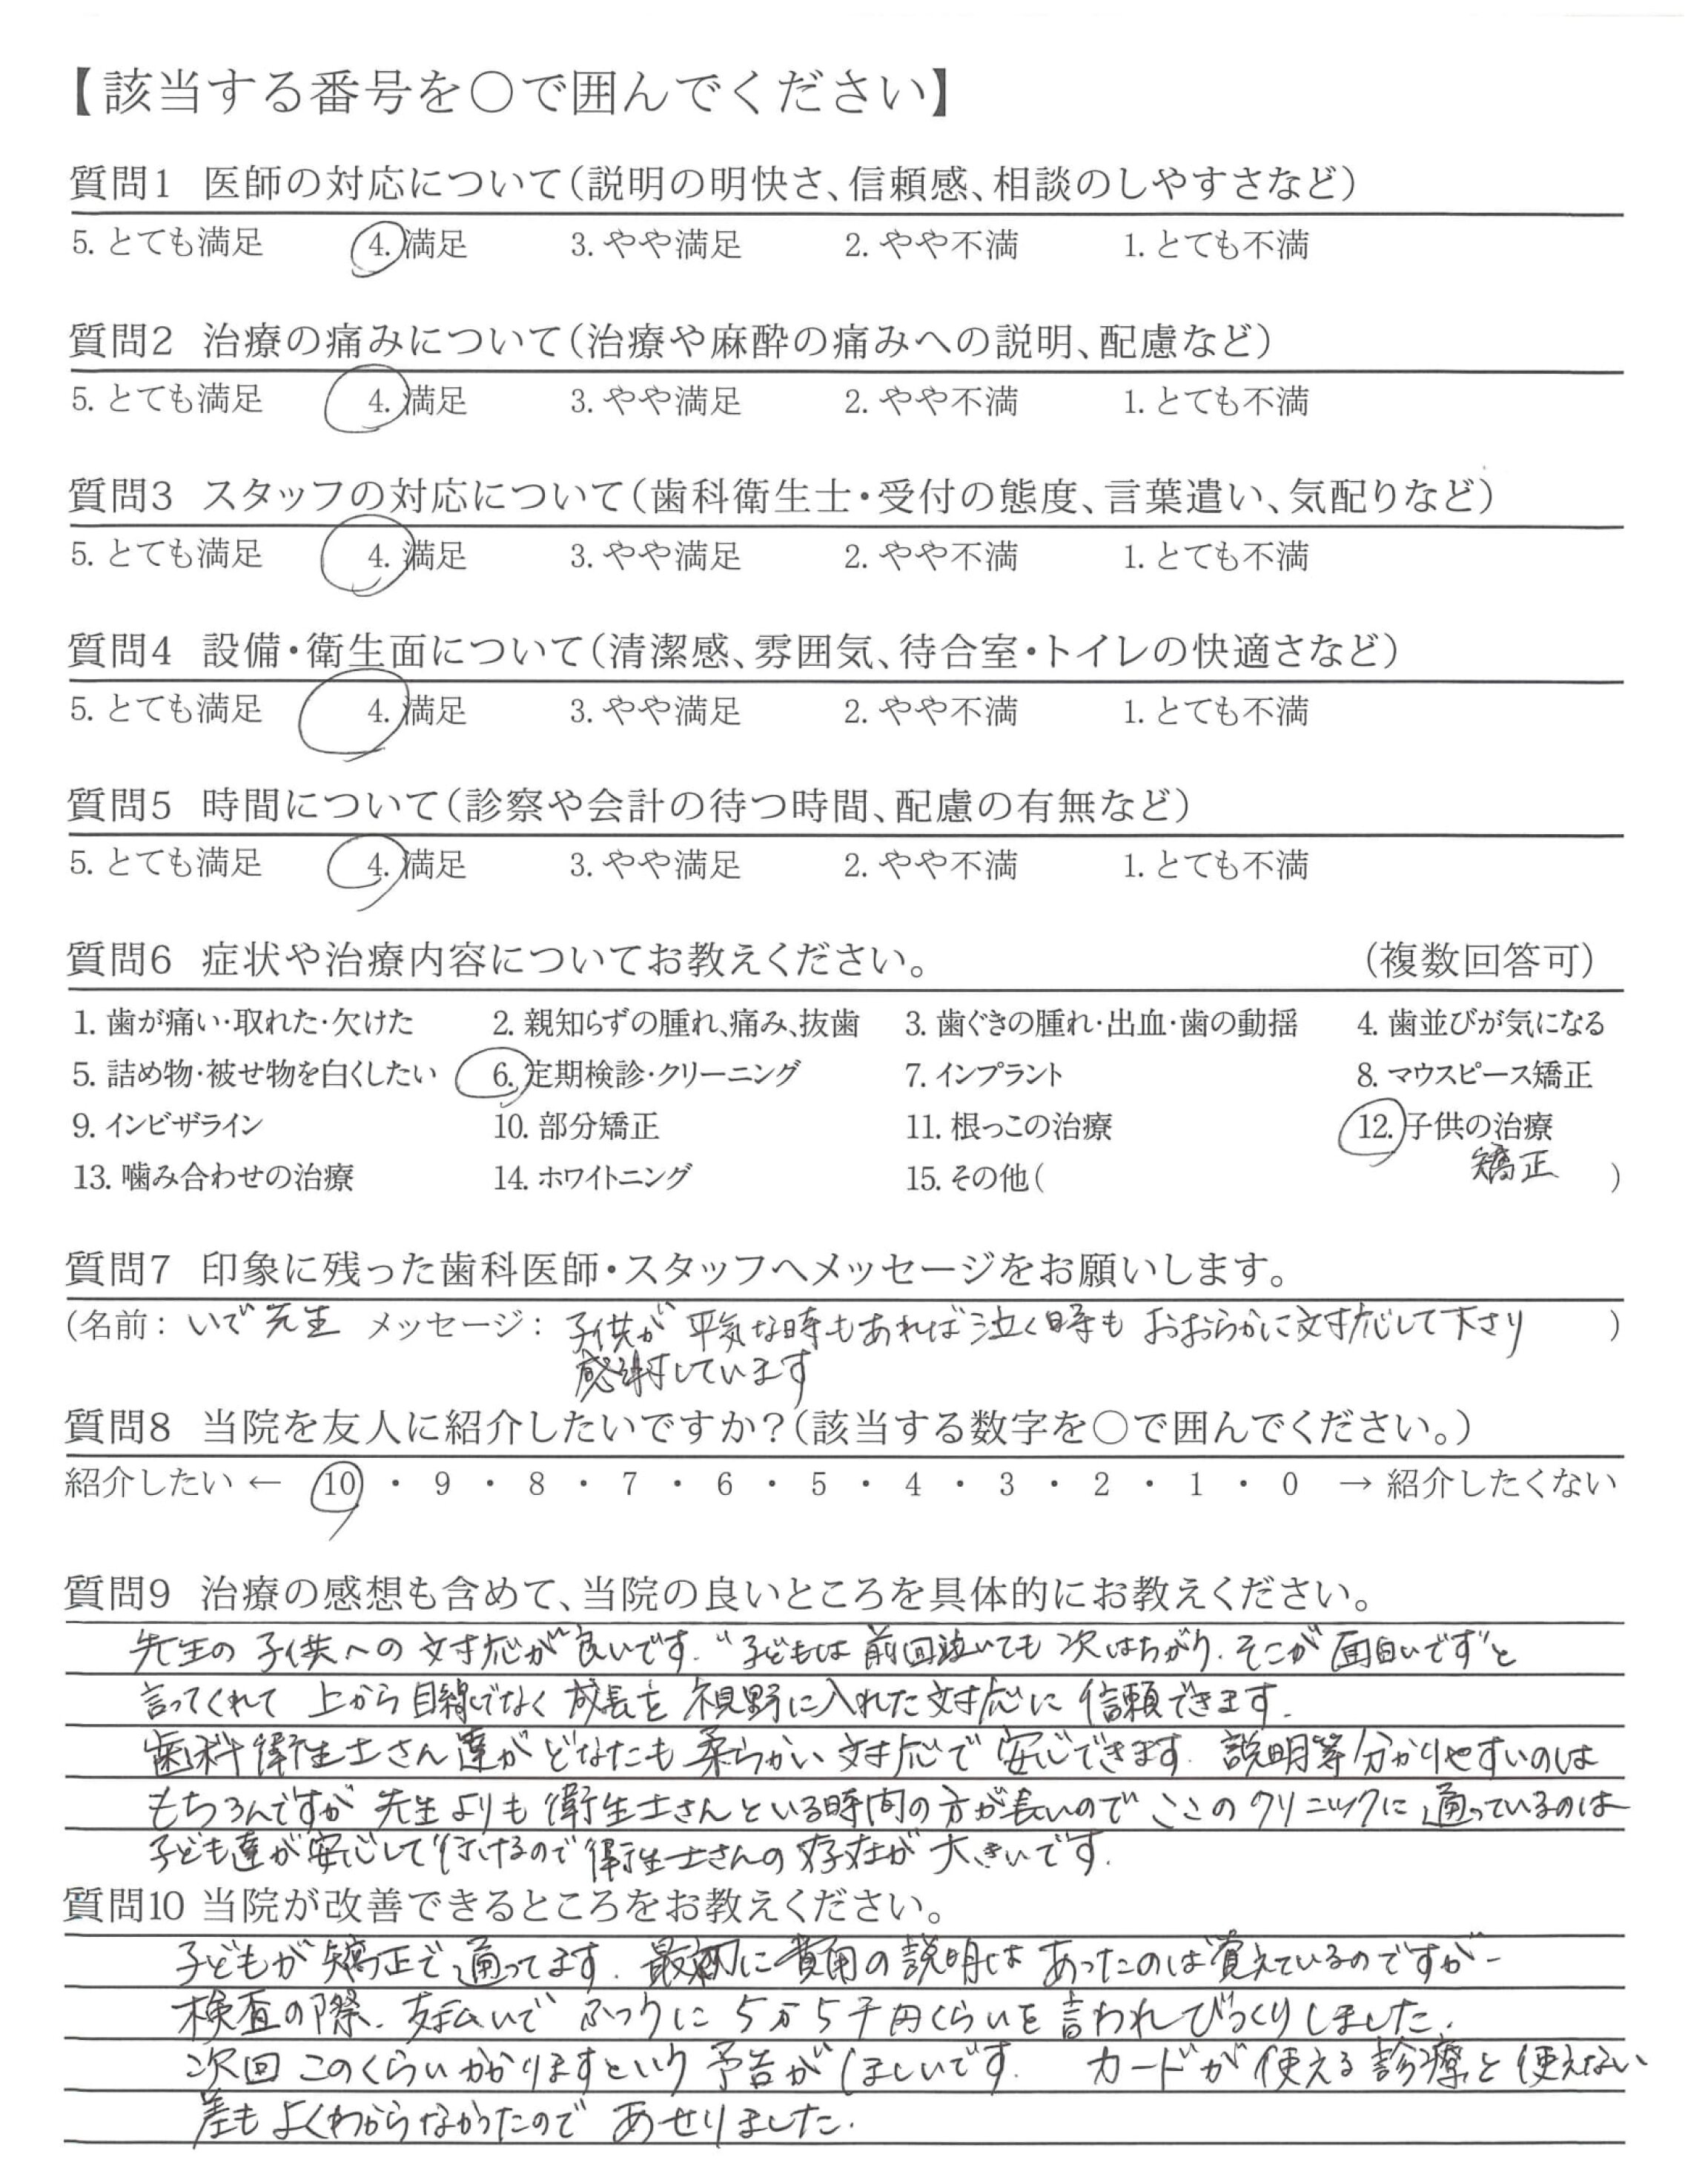 【該当する番号を○で囲んでください】
質問1 医師の対応について(説明の明快さ、信頼感、相談のしやすさなど)
5. とても満足 4. 満足 3. やや満足 2. やや不満 1. とても不満
質問2 治療の痛みについて(治療や麻酔の痛みへの説明、配慮など)
5. とても満足 4. 満足 3. やや満足 2. やや不満 1. とても不満
質問3 スタッフの対応について(歯科衛生士・受付の態度、言葉遣い、気配りなど)
5. とても満足 4. 満足 3. やや満足 2. やや不満 1. とても不満
質問4 設備・衛生面について(清潔感、雰囲気、待合室・トイレの快適さなど)
5. とても満足 4. 満足 3. やや満足 2. やや不満 1. とても不満
質問5 時間について(診察や会計の待つ時間、配慮の有無など)
5. とても満足 4. 満足 3. やや満足 2. やや不満 1. とても不満
質問6 症状や治療内容についてお教えください。 (複数回答可)
1. 歯が痛い・取れた・欠けた 2. 親知らずの腫れ、痛み、抜歯 3. 歯ぐきの腫れ・出血・歯の動揺 4. 歯並びが気になる
5. 詰め物・被せ物を白くしたい 6. 定期検診・クリーニング 7. インプラント 8. マウスピース矯正
9. インビザライン 10. 部分矯正 11. 根っこの治療 12. 子供の治療
13. 噛み合わせの治療 14. ホワイトニング 15. その他( 矯正 )
質問7 印象に残った歯科医師・スタッフへメッセージをお願いします。
(名前: いで先生 メッセージ: 子供が平気な時もあれば泣く時もおおらかに対応して下さり )
感謝しています
質問8 当院を友人に紹介したいですか?(該当する数字を○で囲んでください。)
紹介したい ← 10 ・ 9 ・ 8 ・ 7 ・ 6 ・ 5 ・ 4 ・ 3 ・ 2 ・ 1 ・ 0 → 紹介したくない
質問9 治療の感想も含めて、当院の良いところを具体的にお教えください。
先生の子供への対応が良いです。"子どもは前回泣いても次はちがう。そこが面白いです"と
言ってくれて 上から目線でなく成長を視野に入れた対応に信頼できます。
歯科衛生士さん達がどなたも柔らかい対応で安心できます。説明等分かりやすいのは
もちろんですが先生よりも衛生士さんといる時間の方が長いのでここのクリニックに通っているのは
子ども達が安心して行けるので衛生士さんの存在が大きいです。
質問10 当院が改善できるところをお教えください。
子どもが矯正で通ってます。最初に費用の説明はあったのは覚えているのですが-
検査の際、支払いでふつうに5万5千円くらいを言われびっくりしました。
次回このくらいかかりますという予告がほしいです。 カードが使える診療と使えない
差もよくわからなかったのであせりました。